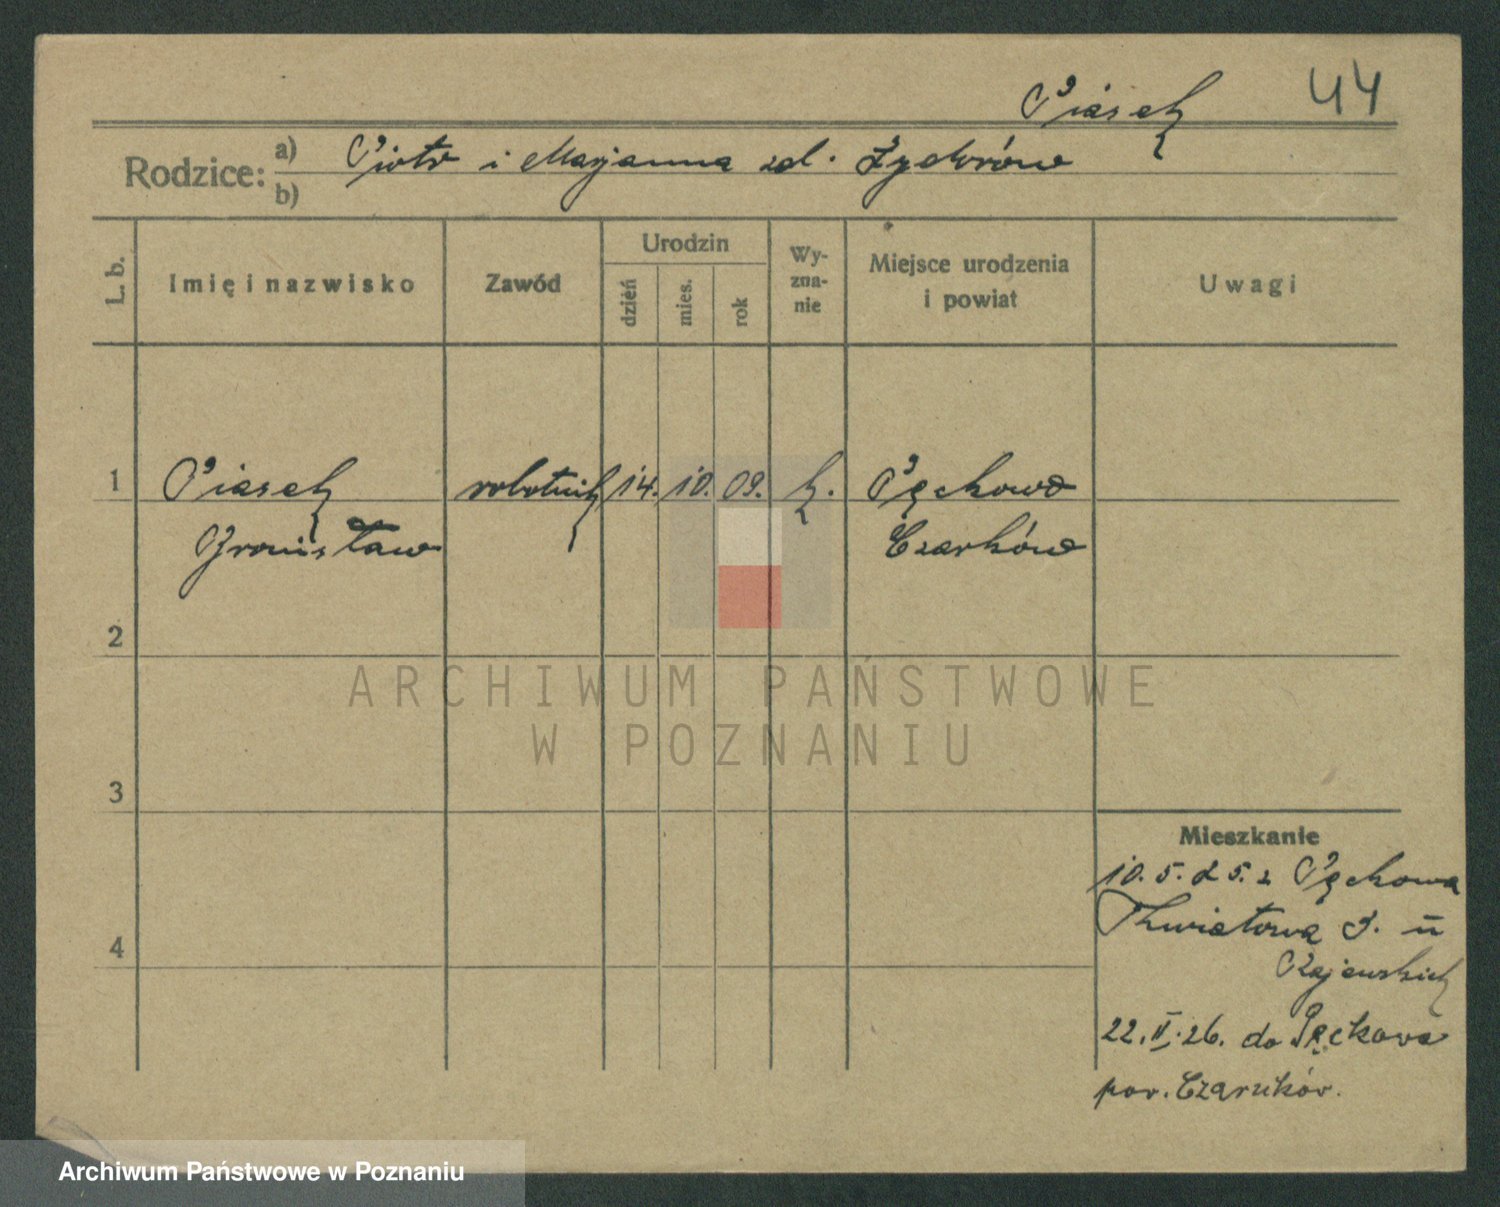 Piasek 44
Rodzice: a) Piotr i Marjanna zd. Zydorów
b)
L. b.
Imię i nazwisko
Zawód
Urodzin
dzień
mies.
rok
Wy-
zna-
nie
Miejsce urodzenia
i powiat
Uwagi
1 Piasek robotnik 14. 10. 09. k. Pęckowo
Bronisław Czarków
2
3
4
Mieszkanie
10. 5. 25. z Pęckowa
Kwiatowa 3. u
Rajewskich
22. II. 26. do Pęckowa
pow. Czarnków.
ARCHIWUM PAŃSTWOWE
W POZNANIU
Archiwum Państwowe w Poznaniu